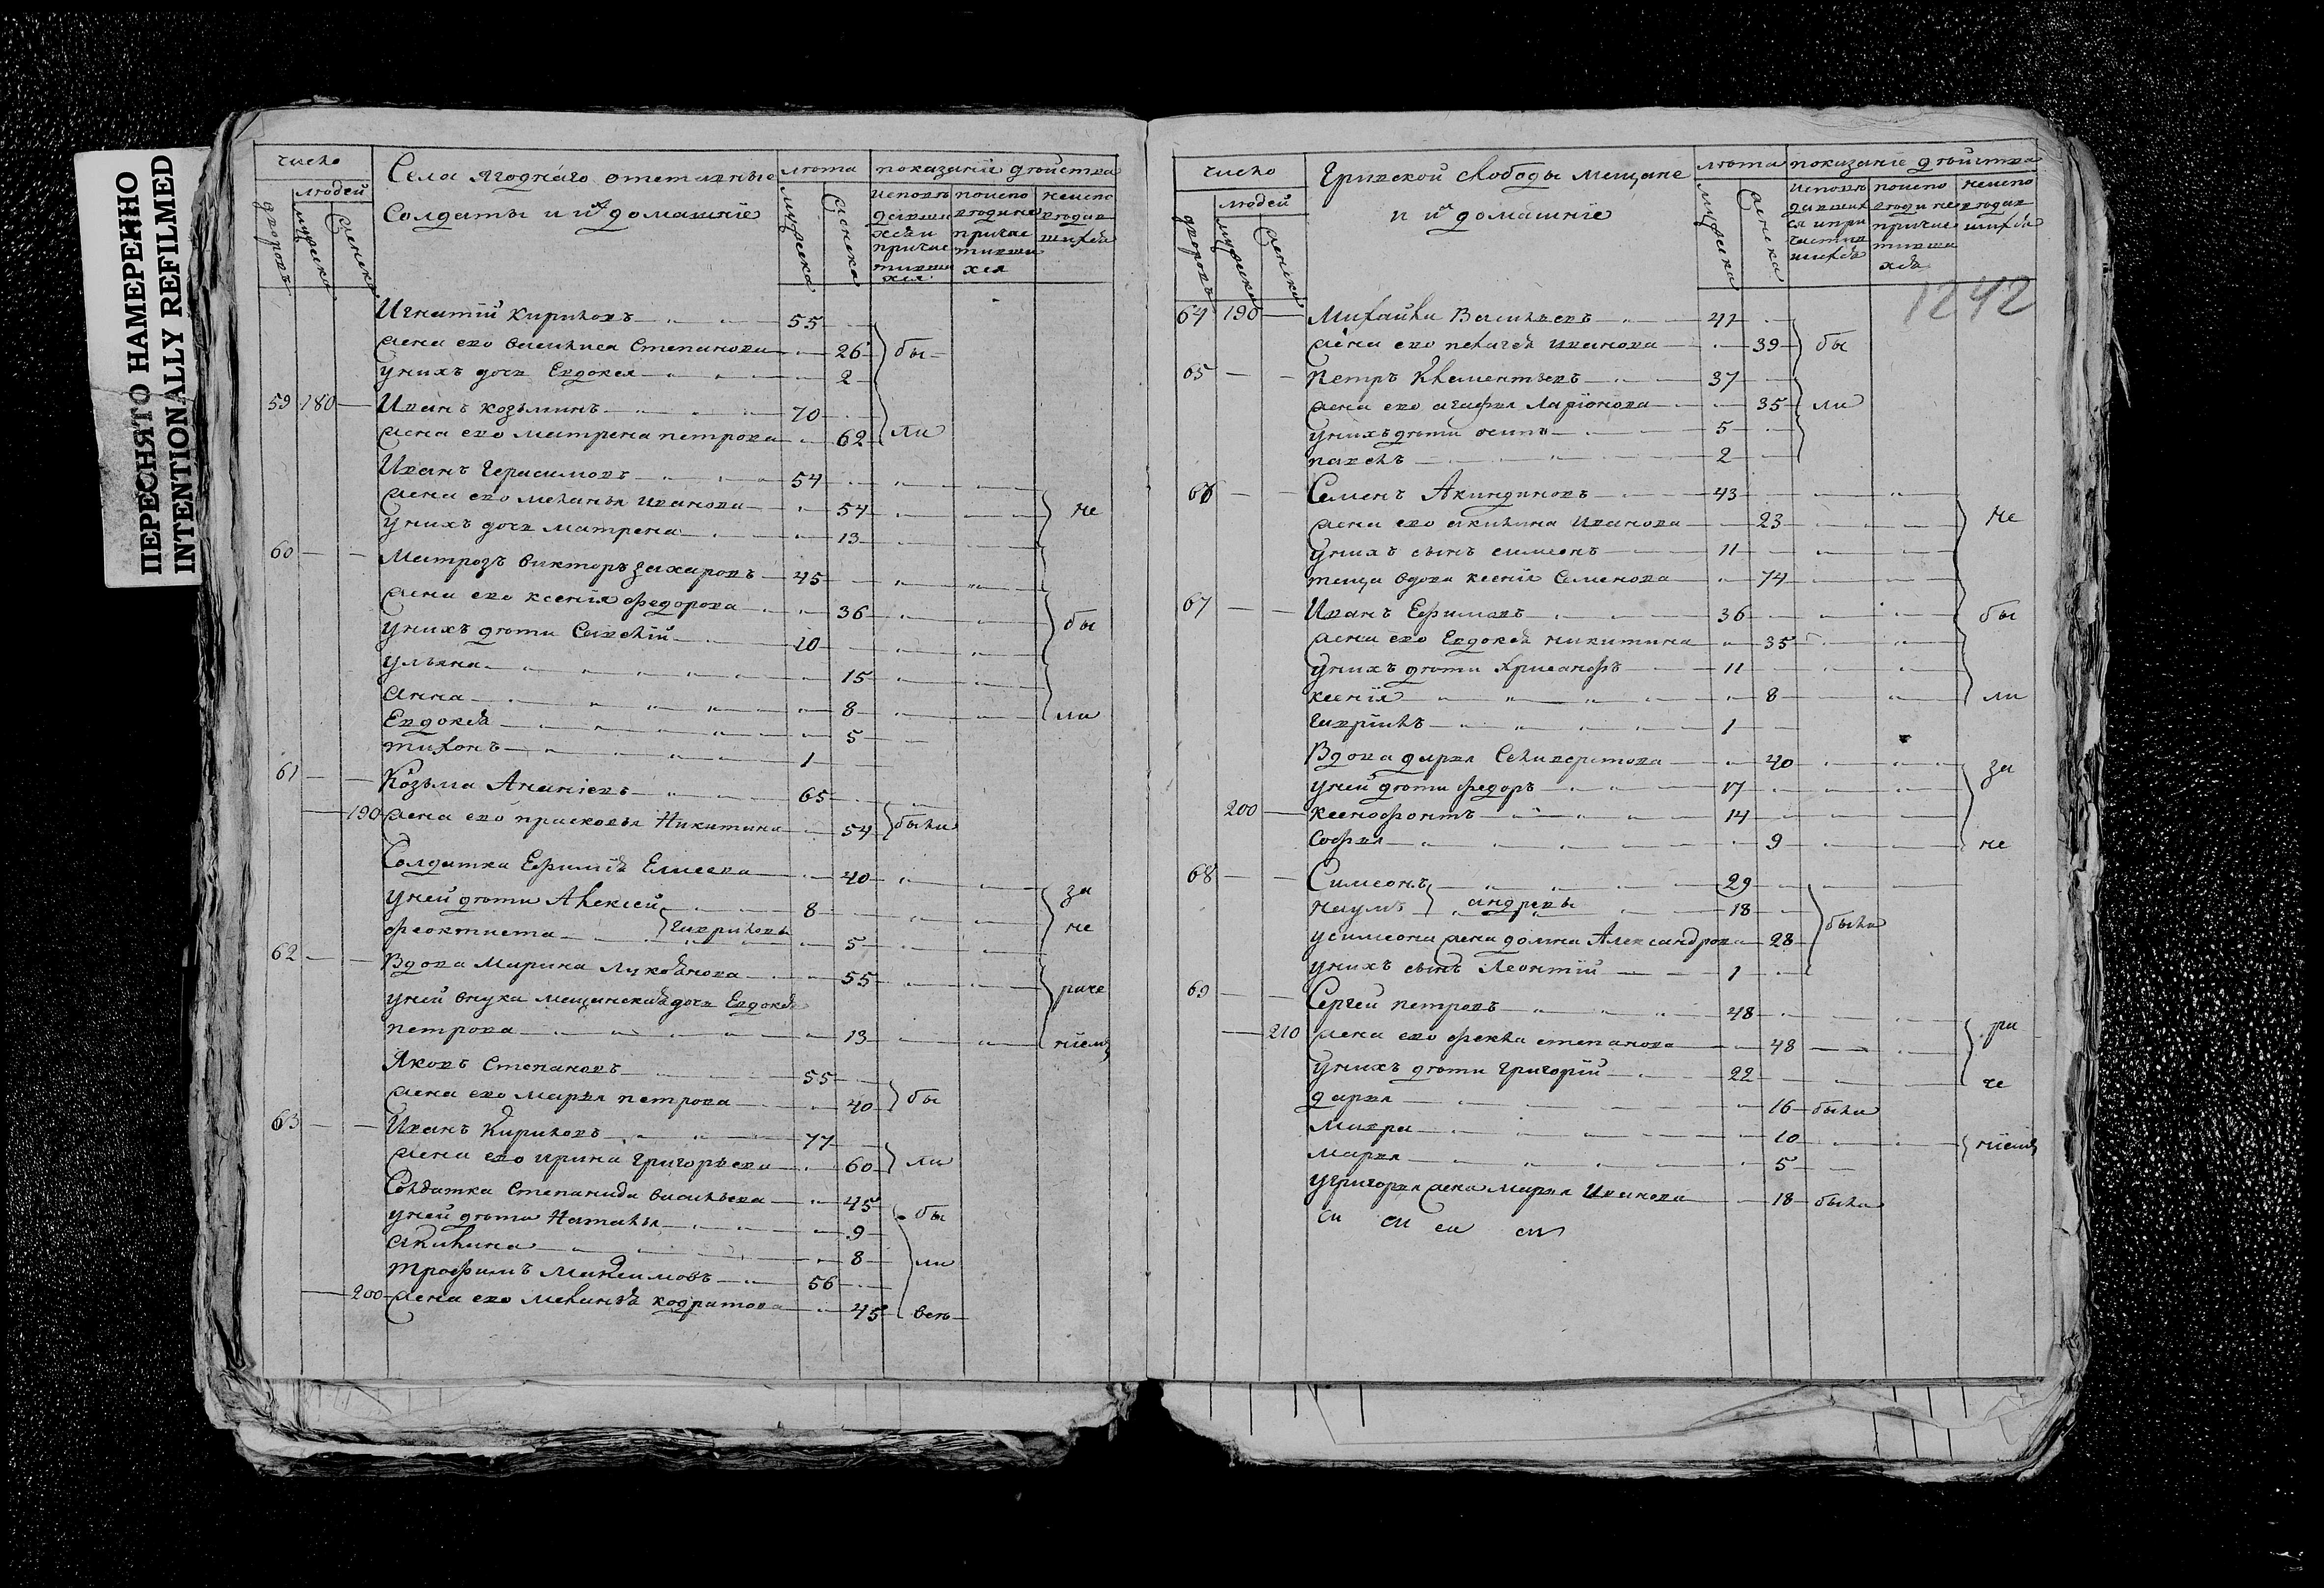 ПЕРЕСНЯТО НАМЕРЕННО
INTENTIONALLY REFILMED
число
людей
дворовъ
мужеска
женска
Села Ягоднаго отставные
Солдаты и ихъ домашнїе
лѣта
мужеска
женска
показанїе дѣйства
исповѣ
давши
хся и
причас
тивши
хся
поиспо
вѣди не
причас
тивши
хся
неиспо
вѣдав
шихся
Игнатїй Кириловъ 55
жена его василиса Степанова 26 бы
у нихъ дочь Евдокея 2
59 180 Иванъ козьминъ 70
жена его матрена петрова 62 ли
Иванъ Герасимовъ 54
жена его меланья Иванова 54 не
у нихъ дочь матрена 13
60 Матрозъ викторъ захаровъ 45
жена его ксенїя федорова 36 бы
у нихъ дѣти Савелїй 10
ульяна 15
анна 8
Евдокея 5 ли
тихонъ 1
61 Козьма Ананїевъ 65
190 жена его прасковья Никитина 54 были
Солдатка Ефимїя Елисеева 40
у ней дѣти Алексей 8 за
феоктиста гавриловы 5 не
62 Вдова Марина Лукоянова 55
у ней внука мещанская дочь Евдокея раче
петрова 13 нїемъ
Яковъ Степановъ 55
жена его Марья петрова 40 бы
63 Иванъ Кириловъ 77
жена его ирина Григорьева 60 ли
Солдатка Степанида васильева 45
у ней дѣти Наталья 9 бы
Акилина 8
трофимъ Максимовъ 56 ли
200 жена его меланья кодратова 45
число
людей
дворовъ
мужеска
женска
Гривской слободы мещане
и ихъ домашнїе
лѣта
мужеска
женска
показанїе дѣйства
исповѣ
давших
ся и при
частив
шихся
поиспо
вѣди не
причас
тивши
хся
неиспо
вѣдав
шихся
1242
64 190 Михайла Васильевъ 41
жена его пелагея иванова 39 бы
65 петръ Клементьевъ 37
жена его агафья Ларїонова 35 ли
у нихъ дѣти осипъ 5
павелъ 2
66 Семенъ Акиндиновъ 43
жена его акилина Иванова 23 не
у нихъ сынъ симеонъ 11
теща вдова ксенїя Семенова 74
67 Иванъ Ефимовъ 36 бы
жена его Евдокея никитина 35
у нихъ дѣти Хрисанфъ 11
ксенїя 8 ли
гаврїилъ 1
Вдова дарья Селиверстова 40 за
у ней дѣти федоръ 17
200 ксенофонтъ 14
софья 9 не
68 Симеонъ 29
наумъ андреевы 18
у симеона жена домна Александрова 28 были
у нихъ сынъ Леонтїй 1
69 Сергей петровъ 48
210 жена его фекла степанова 48 ра
у нихъ дѣти григорїй 22 че
дарья 16 были
Мавра 10 нїемъ
марья 5
у григорья жена марья Иванова 18 была